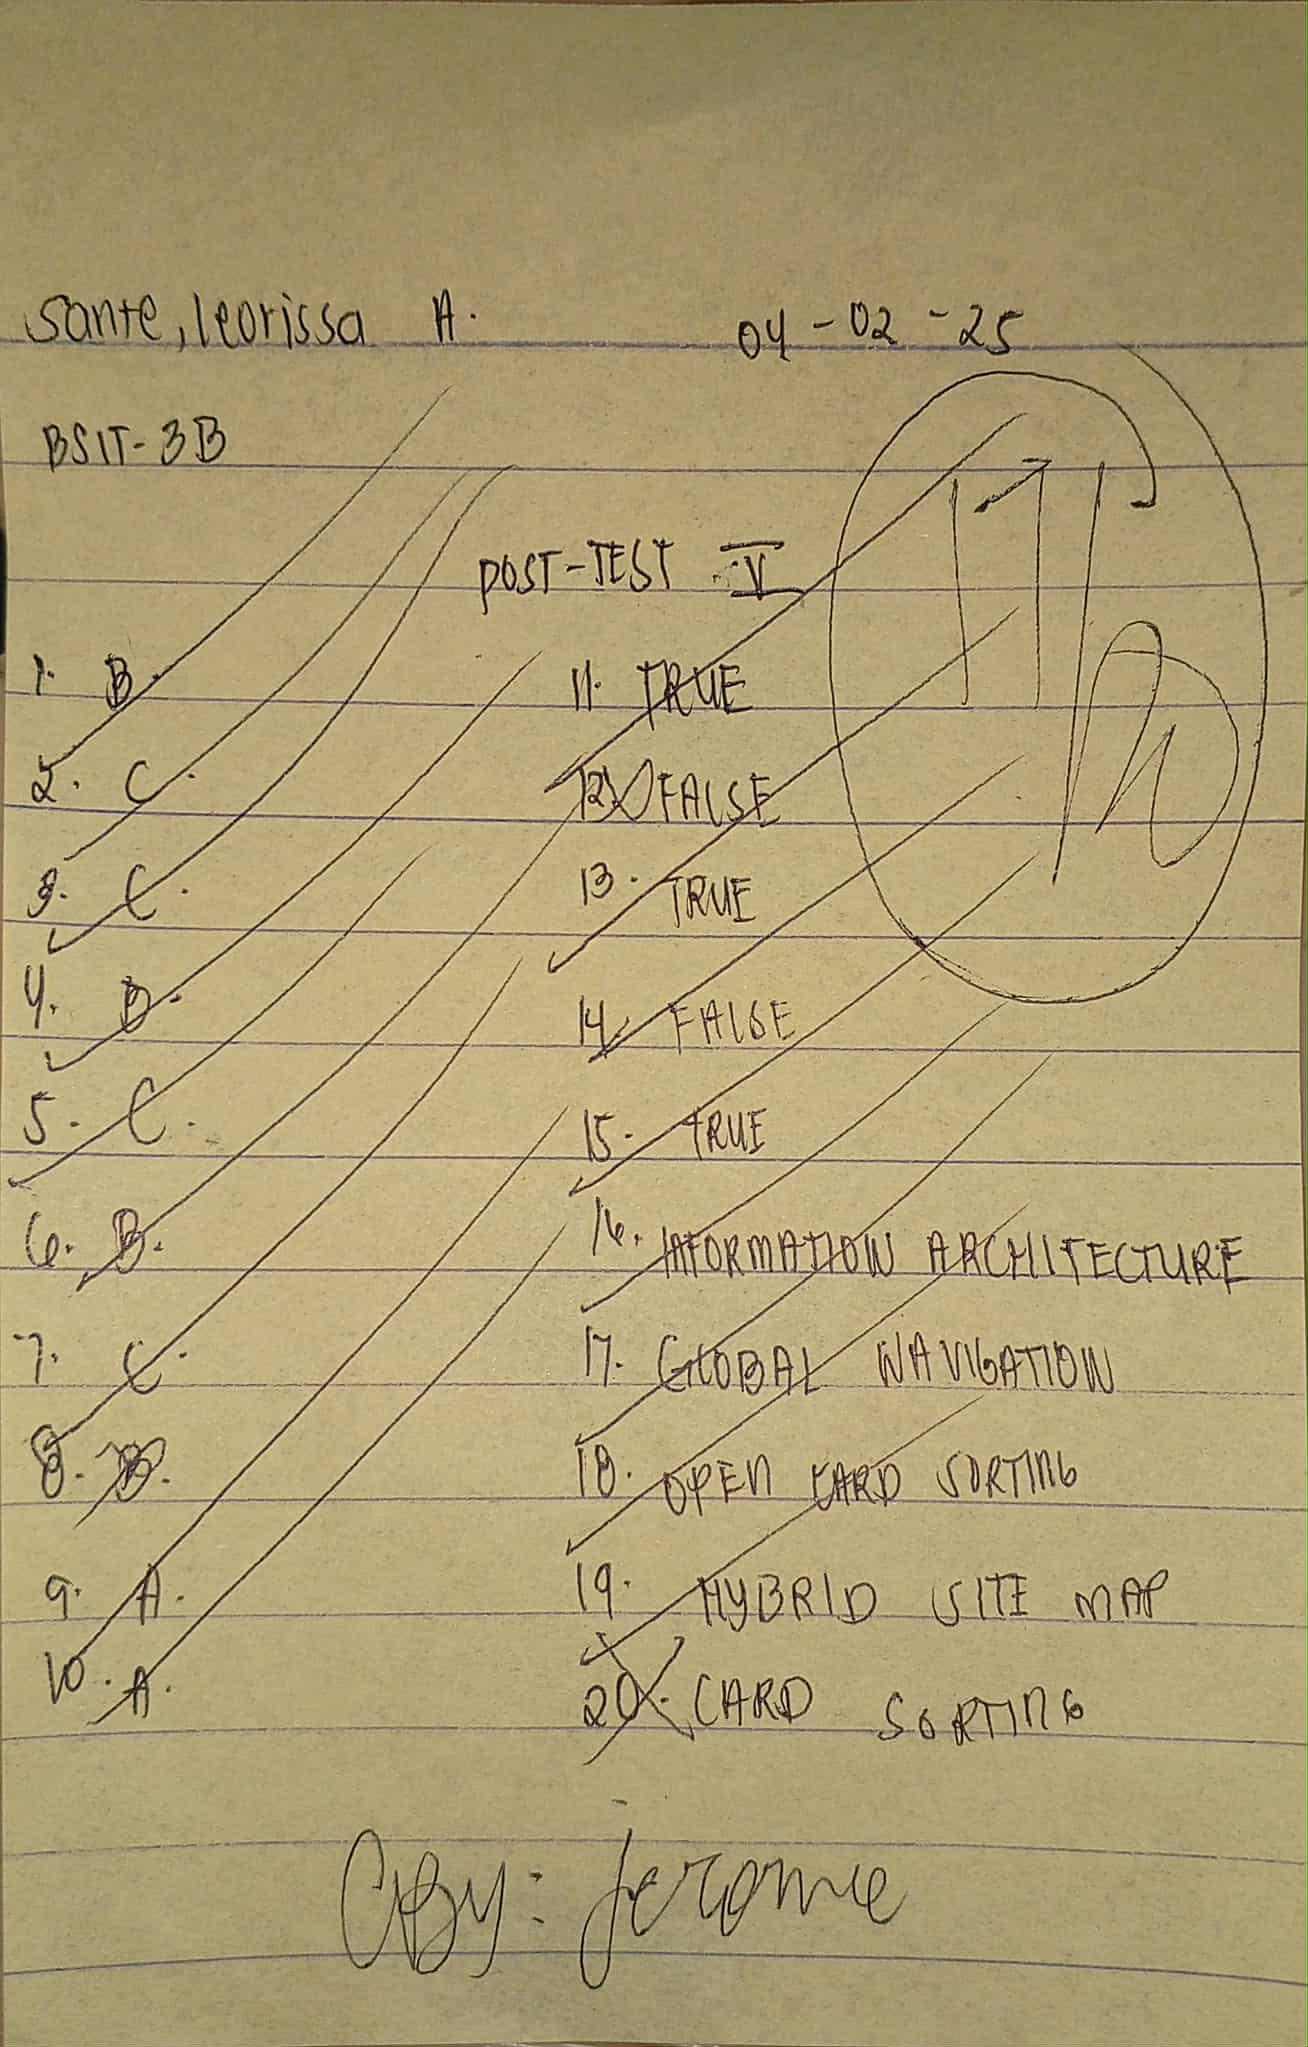 Sante, leorissa A. 04-02-25
BSIT-3B
POST-TEST V
1. B.
2. C.
3. C.
4. D.
5. C.
6. B.
7. C.
8. B.
9. A.
10. A.
11. TRUE
12. FALSE
13. TRUE
14. FALSE
15. TRUE
16. INFORMATION ARCHITECTURE
17. GLOBAL NAVIGATION
18. OPEN CARD SORTING
19. HYBRID SITE MAP
20. CARD SORTING
CBy: jerome